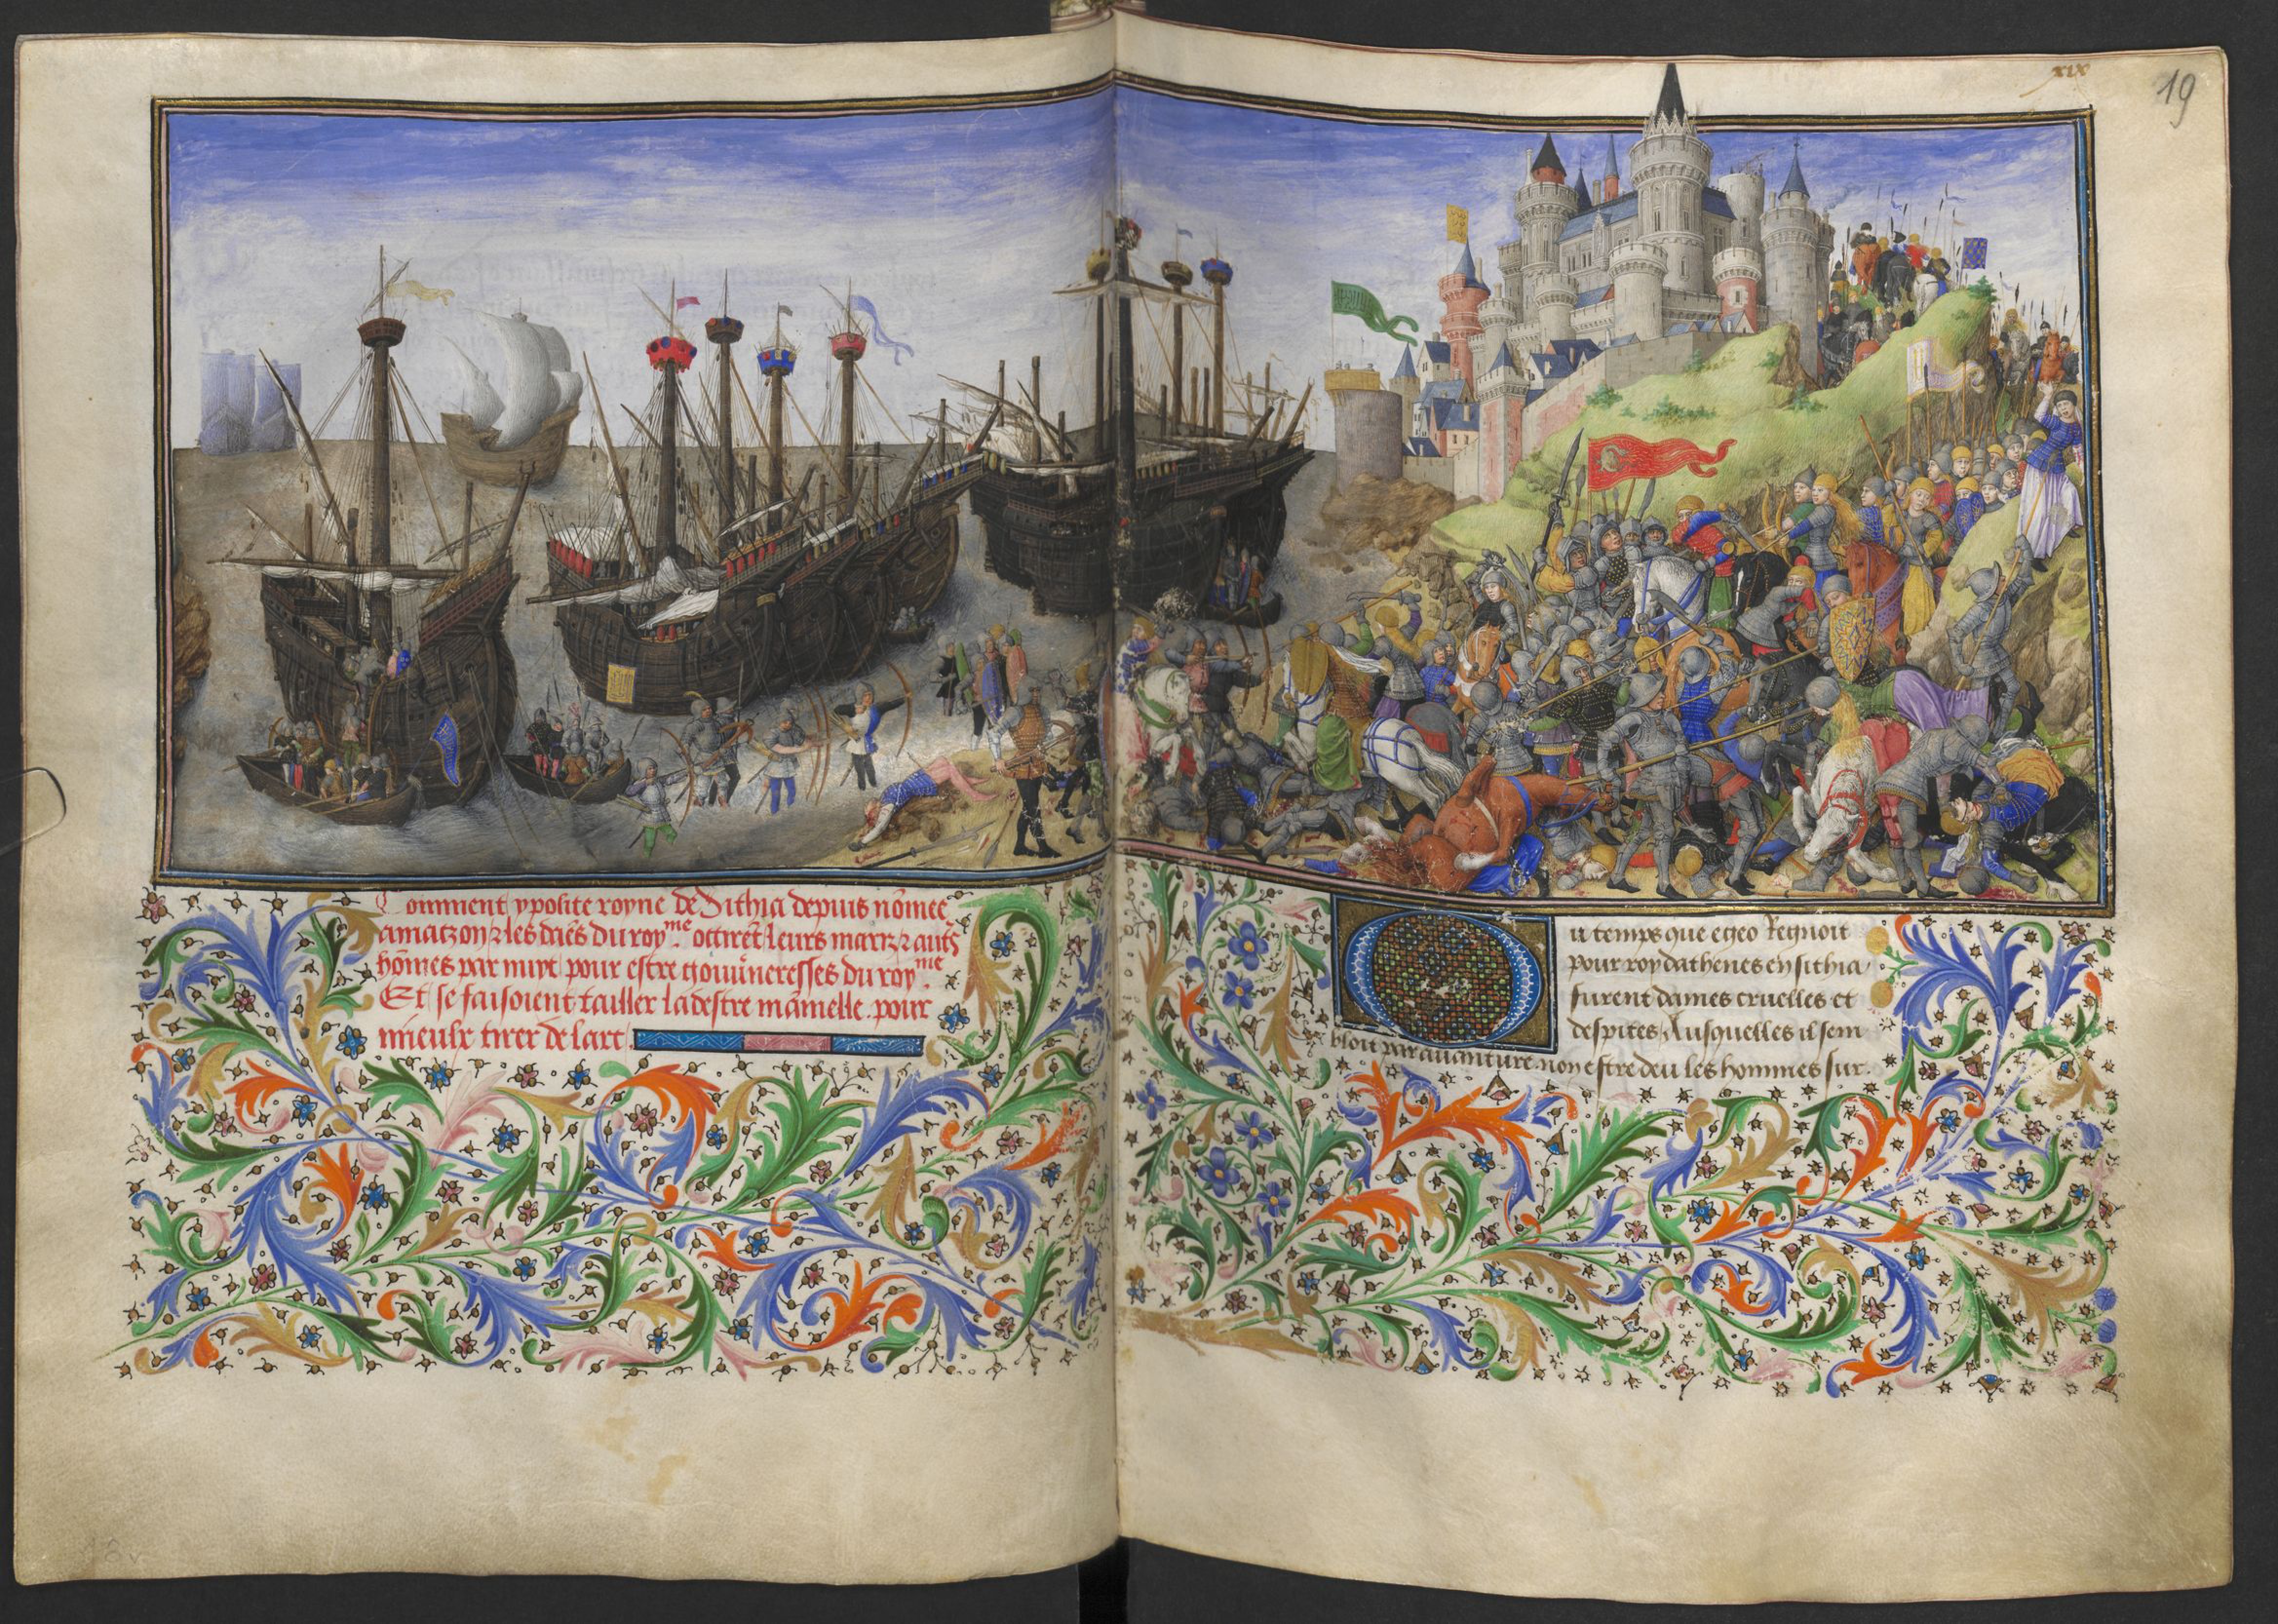 xix
19
Comment ypolite royne de Sithia depuis nōmee
amazon ⁊ les dāes du roy.me occirēt leurs mariz ⁊ aut͛s
hōmes par nuyt pour estre gouūneresses du roy.me
Et se faisoient tailler la destre māmelle pour
mieulx tirer de larc.
Ou temps que egeo Regnoit
pour roy dathenes en sithia
furent dames cruelles et
despites Ausquelles il sem
bloit par auanture non estre deu les hommes sur
18v